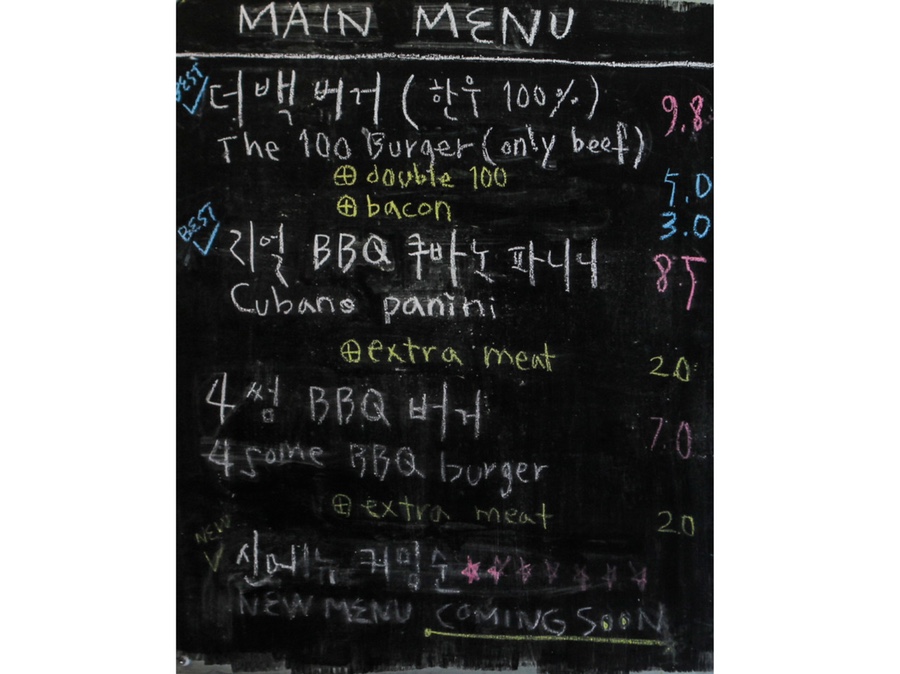 MAIN MENU
BEST 더백 버거 (한우 100%) 9.8
The 100 Burger (only beef)
⊕ double 100 5.0
⊕ bacon 3.0
BEST 리얼 BBQ 쿠바노 파니니 8.5
Cubano panini
⊕ extra meat 2.0
4썸 BBQ 버거 7.0
4some BBQ burger
⊕ extra meat 2.0
NEW 신메뉴 커밍순
NEW MENU COMING SOON